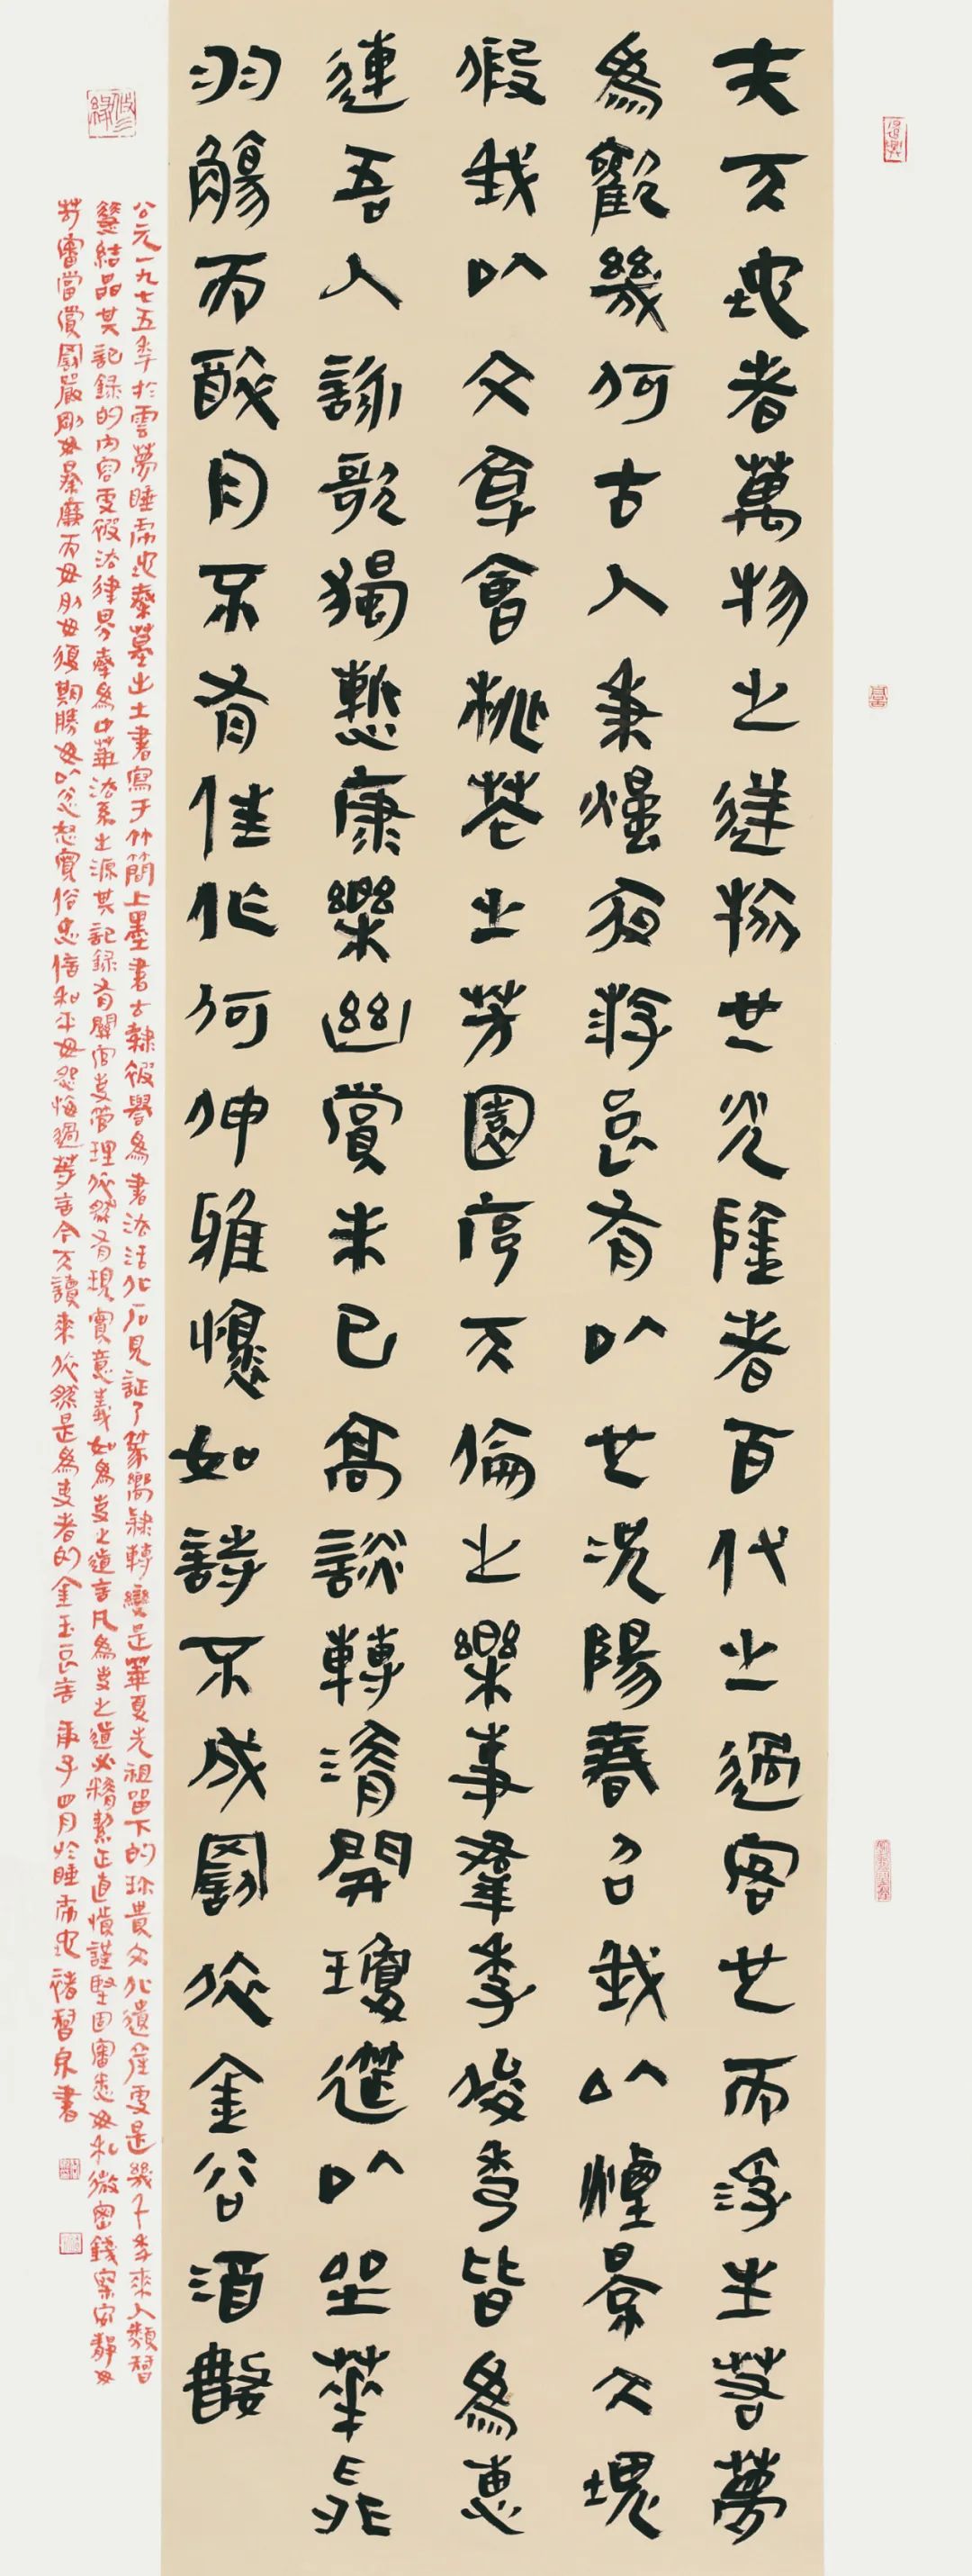 夫天地者萬物之逆旅也光陰者百代之過客也而浮生若夢
爲歡幾何古人秉燭夜游良有以也況陽春召我以煙景大塊
假我以文章會桃花之芳園序天倫之樂事羣季俊秀皆爲惠
連吾人詠歌獨慙康樂幽賞未已高談轉清開瓊筵以坐華飛
羽觴而醉月不有佳作何伸雅懷如詩不成罰依金谷酒數
公元一九七五年於雲夢睡虎地秦墓出土書寫于竹簡上墨書古隸被譽爲書法活化石見証了篆嚮隸轉變是華夏先祖留下的珍貴文化遺産更是幾千年來人類智
慧結晶其記録的内容更被法律界奉爲中華法系之源其記録有關官吏管理依然有現實意義如爲吏之道言凡爲吏之道必精絜正直慎謹堅固審悉毋私微密韱察安靜毋
苛審當賞罰嚴剛毋暴廉而毋刖毋復期勝毋以忿怒寬俗忠信和平毋怨悔過等言今天讀來依然是爲吏者的金玉良言 庚子四月於睡虎地褚智泉書